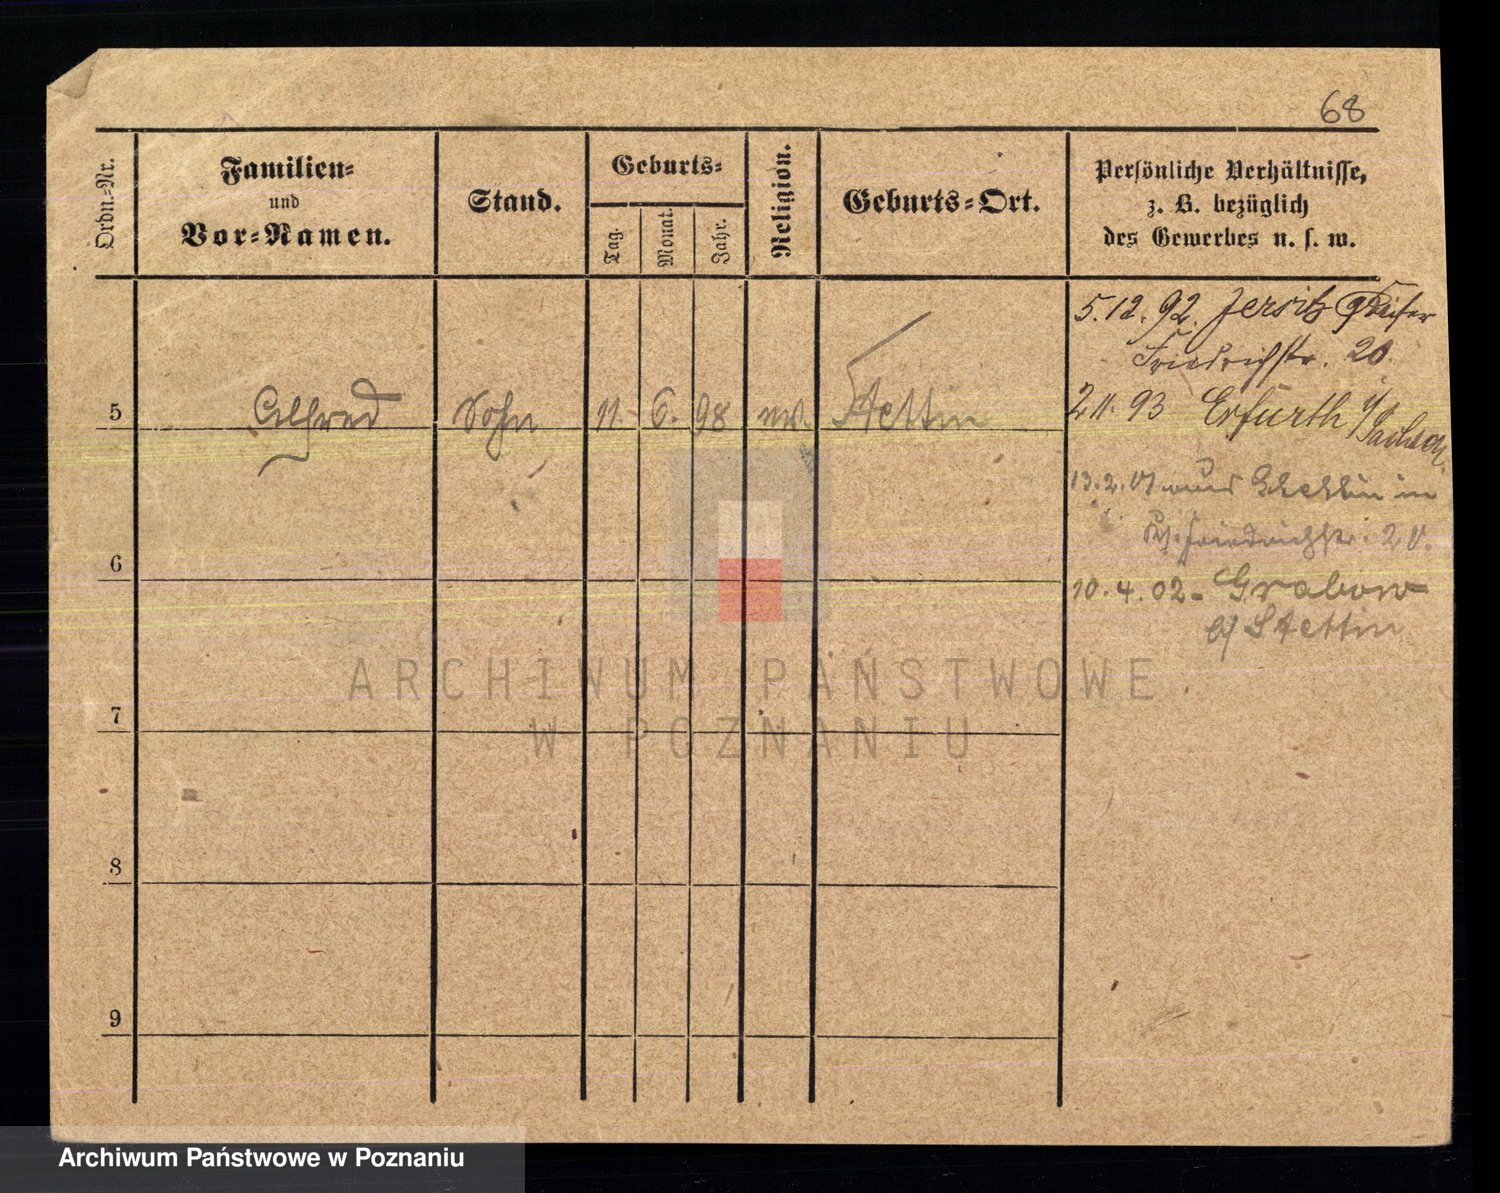 68
Ordn.-Nr.
Familien-
und
Vor-Namen.
Stand.
Geburts-
Tag.
Monat.
Jahr.
Religion.
Geburts-Ort.
Persönliche Verhältnisse,
z. B. bezüglich
des Gewerbes u. s. w.
5.12.92. Jersitz
Friedrichstr. 20.
5 Alfred Sohn 11. 6. 98 Stettin
2.11.93 Erfurth i/Sachsen
13.2.01 Stettin in
Friedrichstr. 20.
6
10.4.02 - Grabow
a/ Stettin
7
8
9
ARCHIWUM PAŃSTWOWE
W POZNANIU
Archiwum Państwowe w Poznaniu